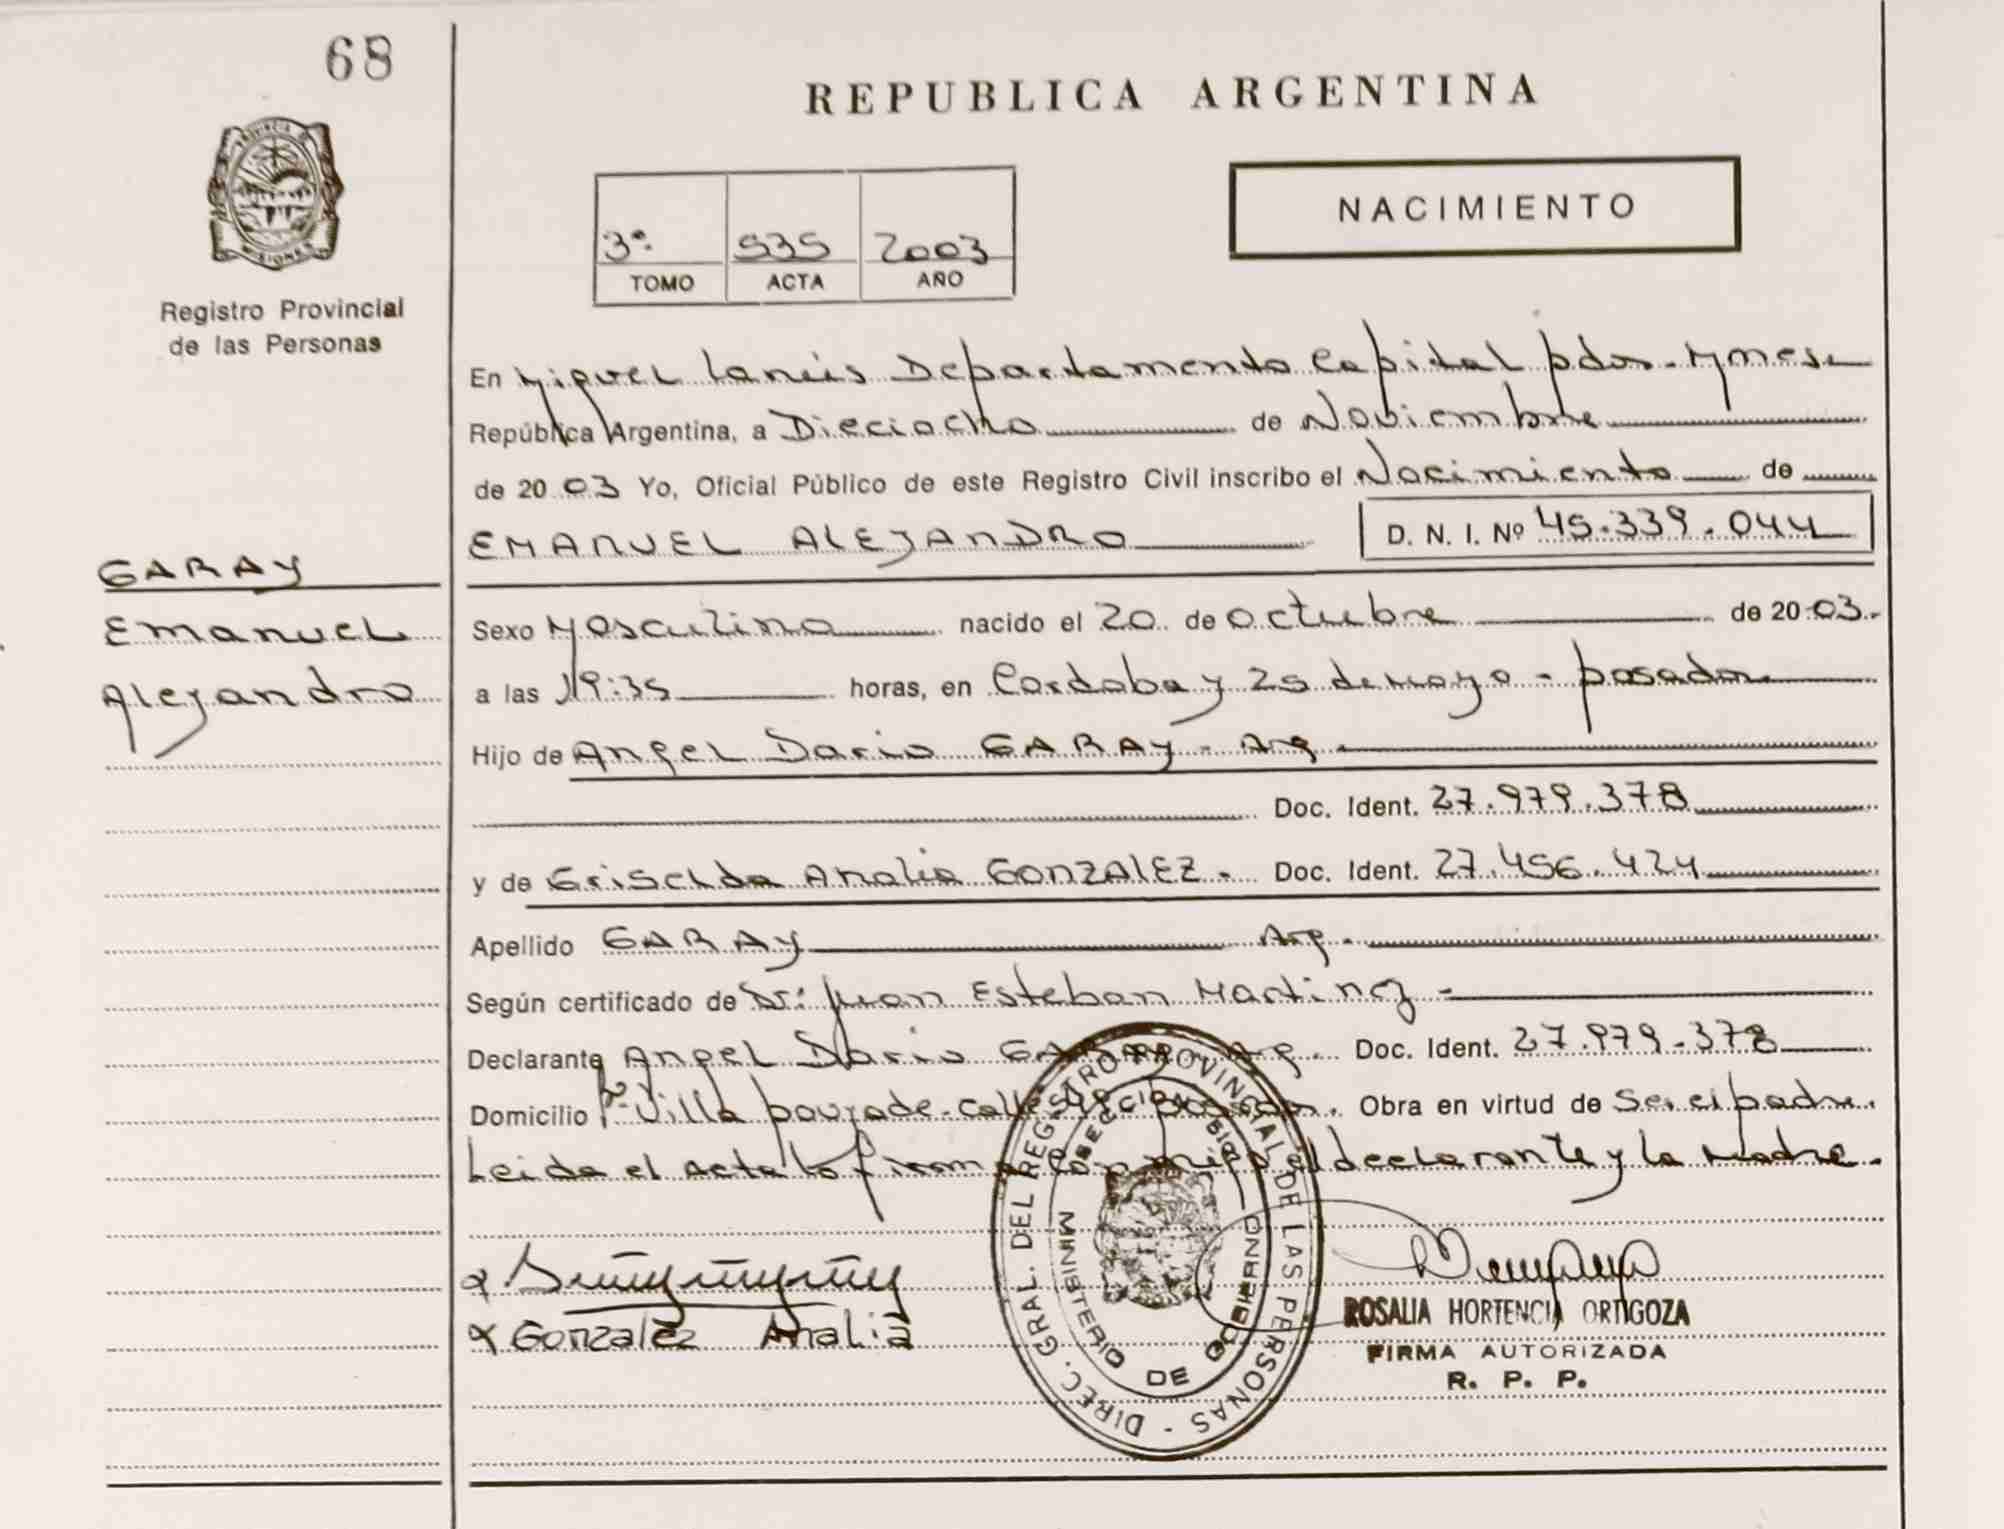 68
REPUBLICA ARGENTINA
PROVINCIA DE MISIONES
Registro Provincial
de las Personas
NACIMIENTO
3º 535 2003
TOMO ACTA AÑO
En Miguel Lanús Departamento Capital pdas. Mnes.
República Argentina, a Dieciocho de Noviembre
de 2003 Yo, Oficial Público de este Registro Civil inscribo el Nacimiento de
EMANUEL ALEJANDRO D. N. I. Nº 45.339.044
GARAY
Emanuel
Alejandro
Sexo Masculino nacido el 20 de octubre de 2003.-
a las 19:35 horas, en Cordoba y 25 de mayo - posadas
Hijo de Angel Dario GARAY - Arg.
Doc. Ident. 27.979.378
y de Griselda Analia GONZALEZ. Doc. Ident. 27.456.424
Apellido GARAY Arg.
Según certificado de Dr. Juan Esteban Martinez -
Declarante Angel Dario GARAY Arg. Doc. Ident. 27.979.378
Domicilio Villa poujade - calle Obra en virtud de Ser el padre.
Leida el acta la firma conmigo el declarante y la Madre.
Gonzalez Analia
DIREC. GRAL. DEL REGISTRO PROVINCIAL DE LAS PERSONAS -
MINISTERIO DE GOBIERNO
ROSALIA HORTENCIA ORTIGOZA
FIRMA AUTORIZADA
R. P. P.